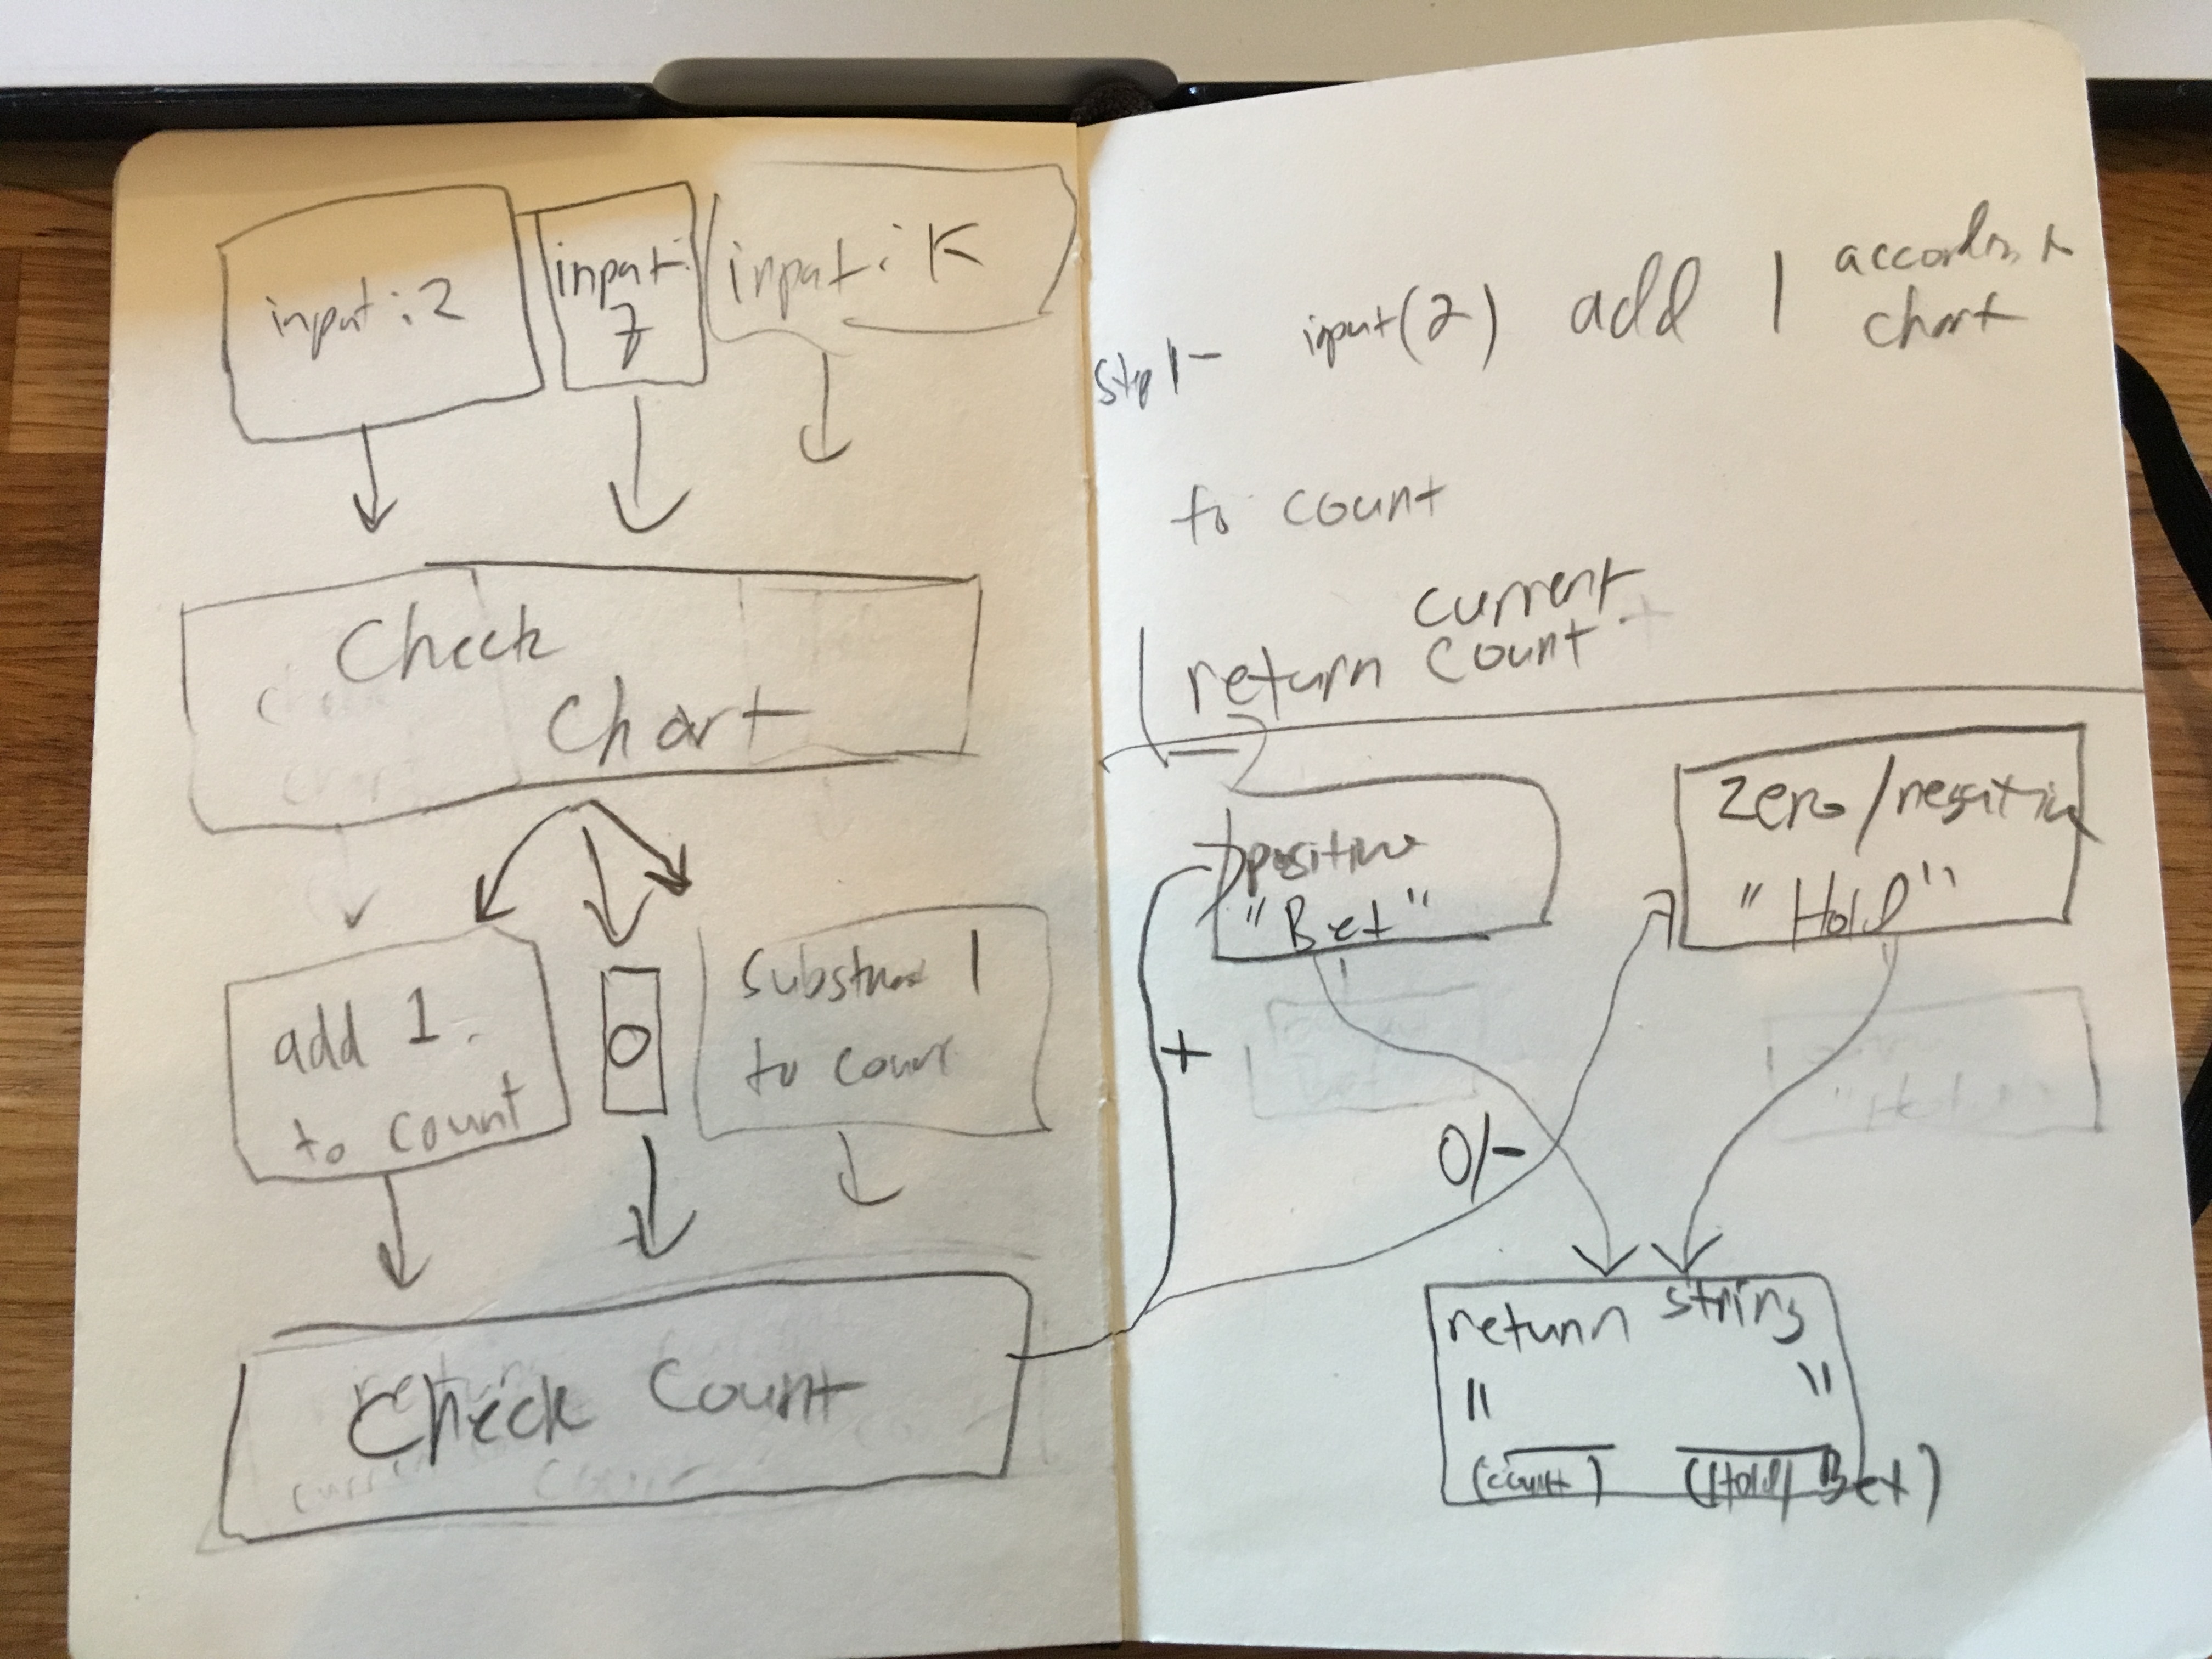 input : 2
input :
7
input : K
Check
Chart
add 1
to count
0
1
to
Check Count
Step 1 - input (2) add 1
chart
to count
current
return count
positive
"Bet"
Zero/negative
"Hold"
+
0/-
return string
" "
(count) (Hold/Bet)